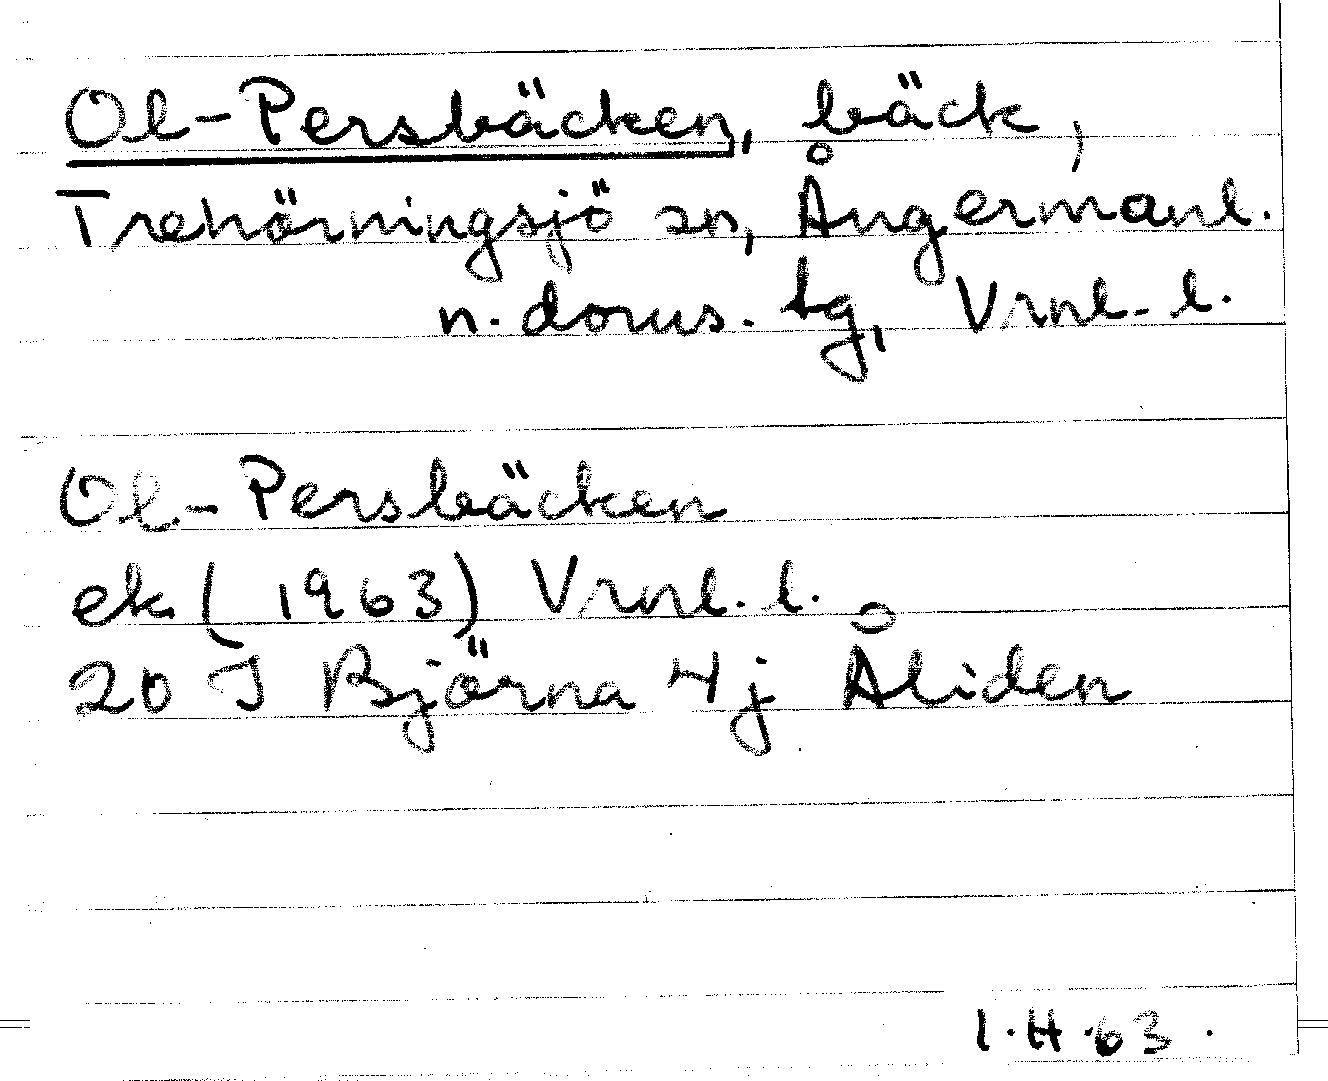 Ol-Persbäcken, bäck,
Trehörningsjö sn, Ångermanl.
n. doms. tg, Vrnl. l.
Ol-Persbäcken
ek. (1963) Vrnl. l.
20 J Björna 4j Åliden
I.H.63.